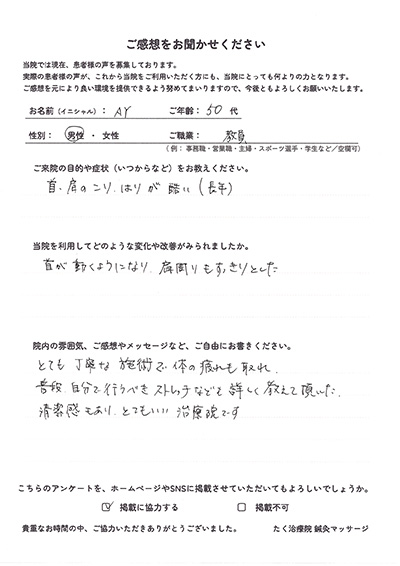 ご感想をお聞かせください
当院では現在、患者様の声を募集しております。
実際の患者様の声が、これから当院をご利用いただく方にも、当院にとっても何よりの力となります。
ご感想を元により良い環境を提供できるよう努めてまいりますので、今後ともよろしくお願いいたします。
お名前（イニシャル）： AY ご年齢： 50 代
性別： 男性 ・ 女性 ご職業： 教員
（例：事務職・営業職・主婦・スポーツ選手・学生など／空欄可）
ご来院の目的や症状（いつからなど）をお教えください。
首・肩のこり、はりが酷い（長年）
当院を利用してどのような変化や改善がみられましたか。
首が動くようになり、肩周りもすっきりとした
院内の雰囲気、ご感想やメッセージなど、ご自由にお書きください。
とても丁寧な施術で体の疲れも取れ、
普段、自分で行うべきストレッチなども詳しく教えて頂いた。
清潔感もあり、とてもいい治療院です
こちらのアンケートを、ホームページやSNSに掲載させていただいてもよろしいでしょうか。
☑ 掲載に協力する □ 掲載不可
貴重なお時間の中、ご協力いただきありがとうございました。 たく治療院 鍼灸マッサージ